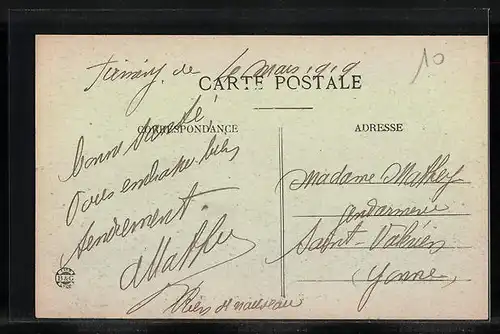 de 10 mars 1919
10
CARTE POSTALE
CORRESPONDANCE
ADRESSE
bonne santé,
Vous embrasse bien
tendrement
Madame Mathey
Gendarmerie
Saint-Valérien
(Yonne)
B & G
Rien de nouveau